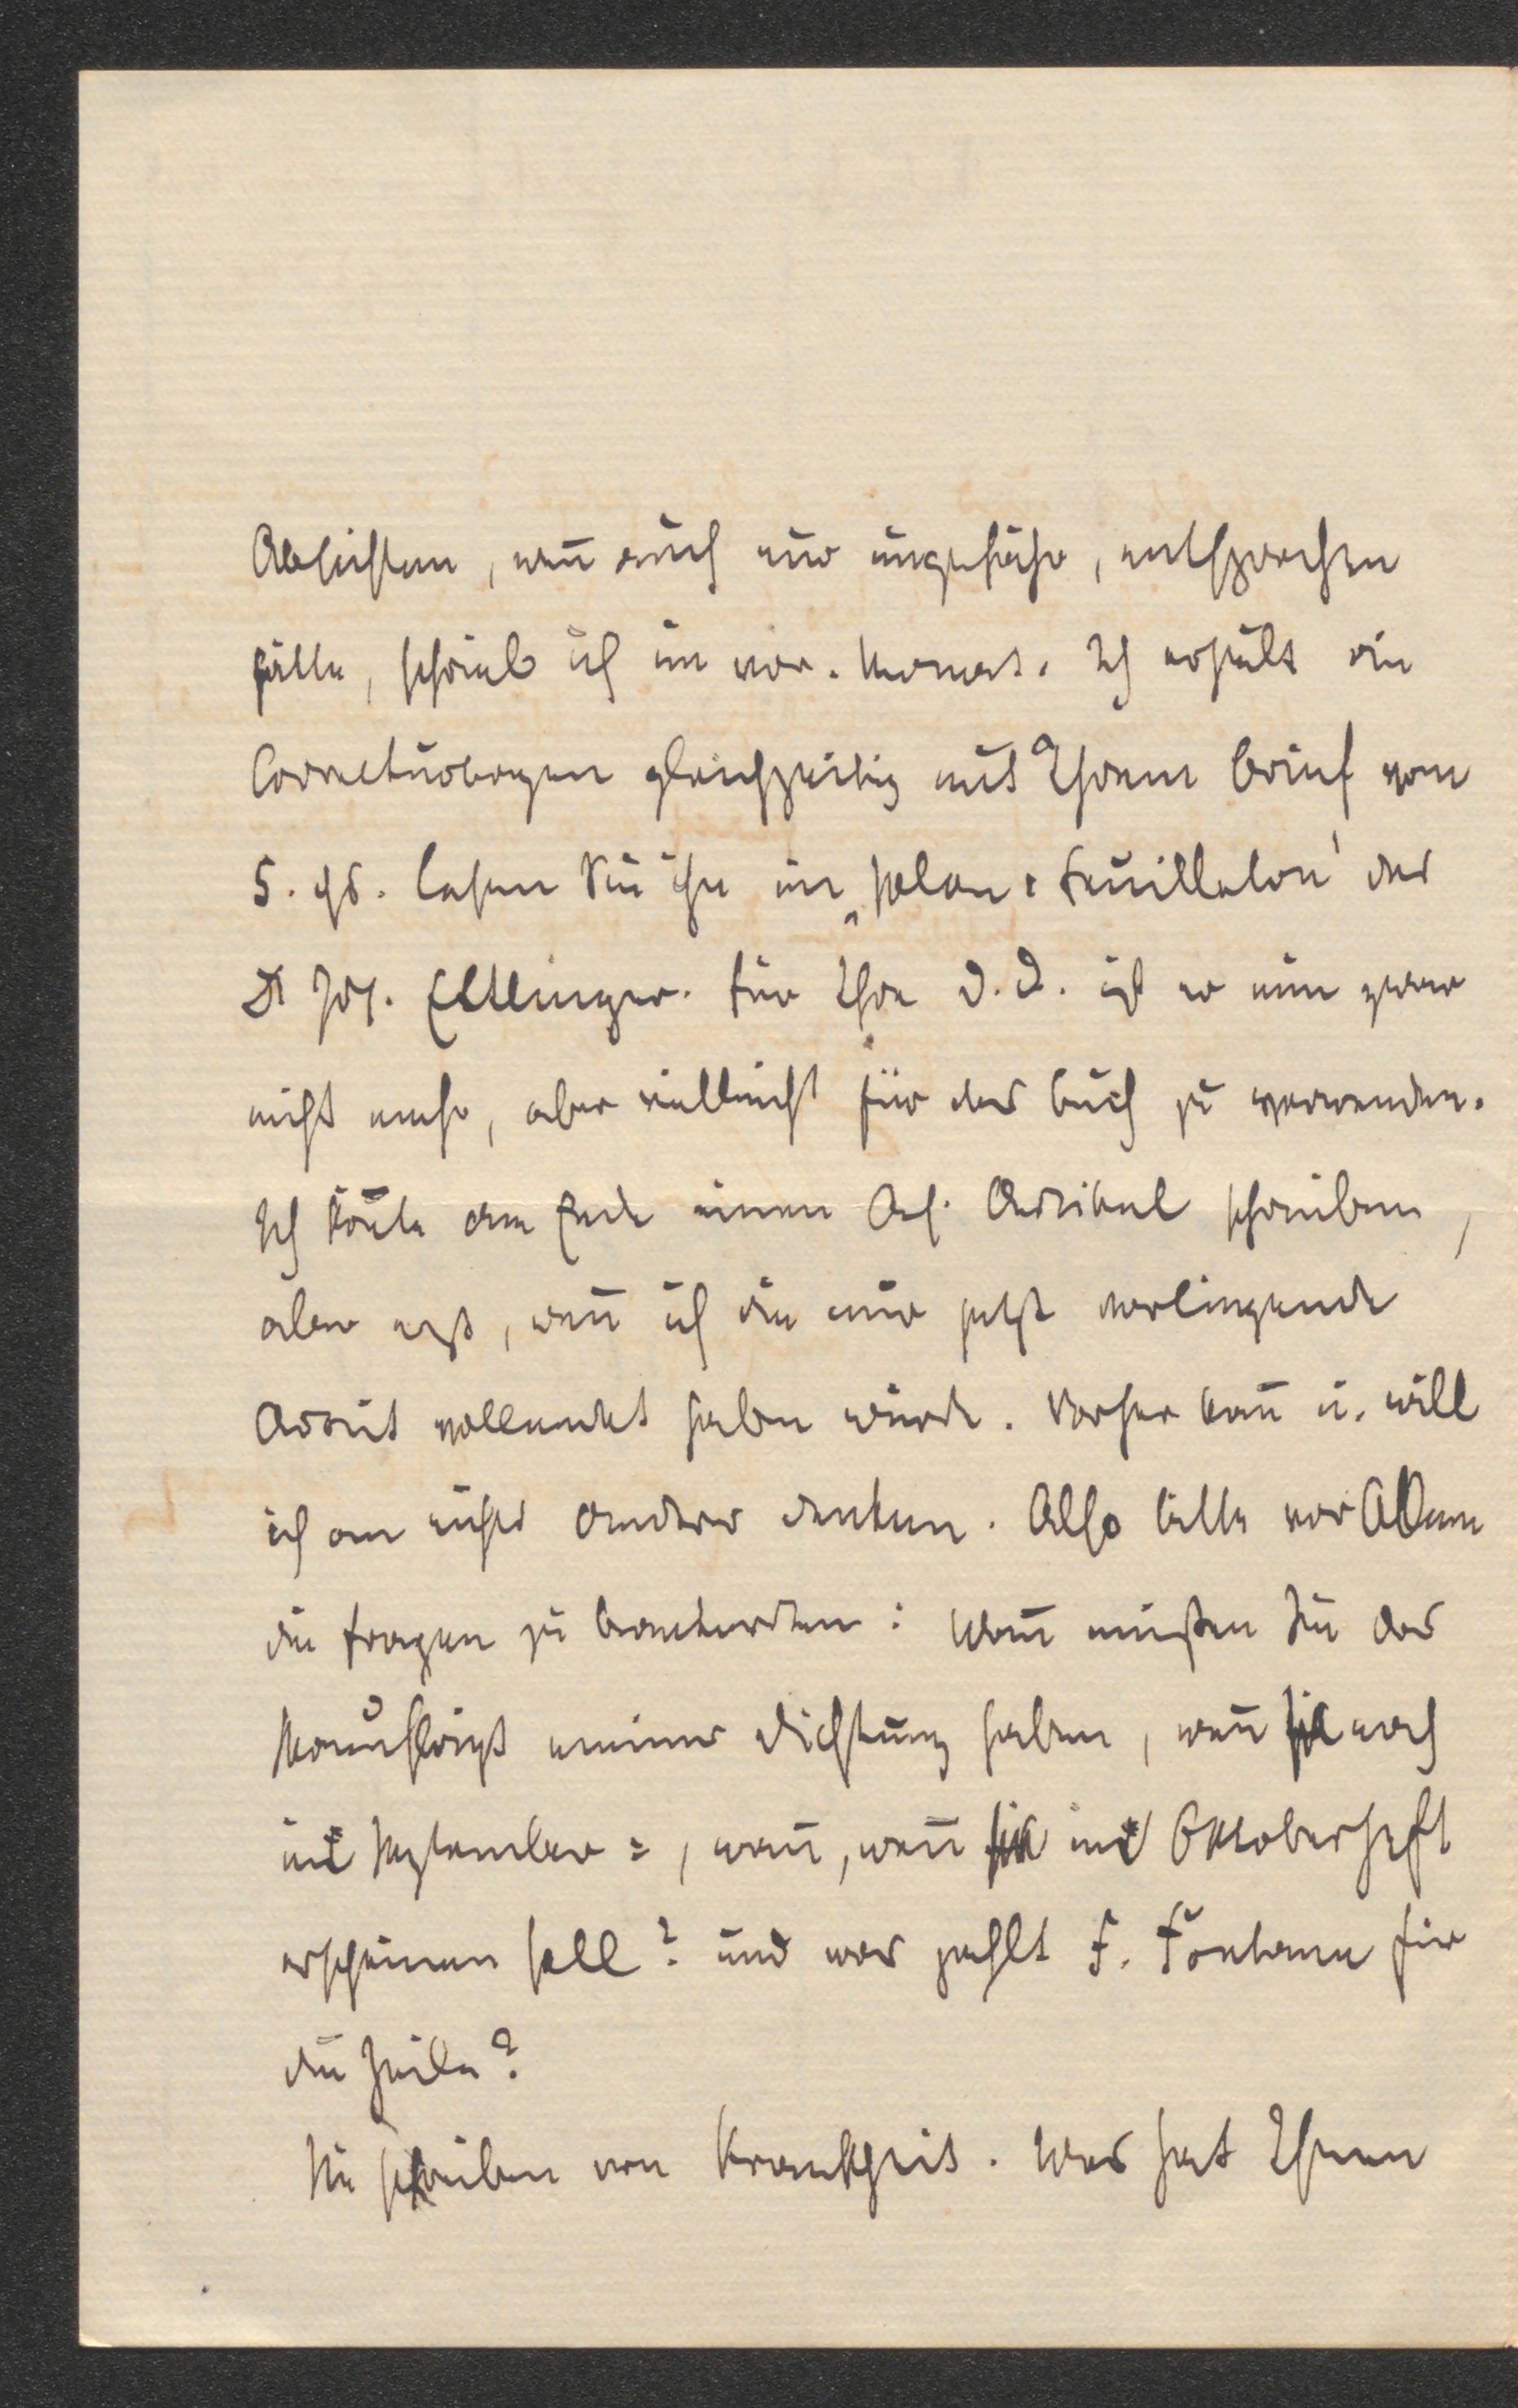 Absichten, wen̅ auch nur ungefähr, entsprochen
hätte, schrieb ich im vor. Monat. Ich erhielt die
Correcturbogen gleichzeitig mit Ihrem Brief vom
5. ds. Lesen Sie ihn im „Salon-Feuilleton" des
Dr Jos. Ettlinger. Für Ihre D. D. ist er nun zwar
nicht mehr, aber vielleicht für das Buch zu verwenden.
Ich kön̅te am Ende einen Artikel schreiben,
aber erst, wen̅ ich die mir jetzt vorliegende
Arbeit vollendet haben würde. Vorher kan̅ u. will
ich an nichts Anderes denken. Also bitte vor Allem
die Fragen zu beantworten: Wan̅ müßten Sie das
Manuskript meiner Dichtung haben, wen̅ sie noch
ins September=, wan̅, wen̅ sie ins Oktoberheft
erscheinen soll? Und was zahlt F. Fontane für
die Zeile?
Sie schreiben von Krankheit. Was hat Ihnen